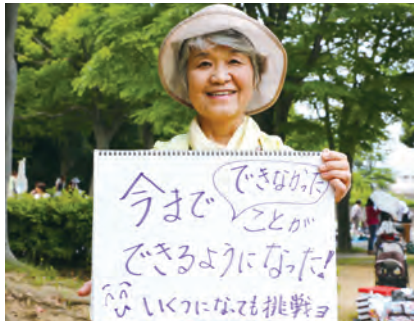 今までできなかった
ことが
できるようになった!
いくつになっても挑戦ョ